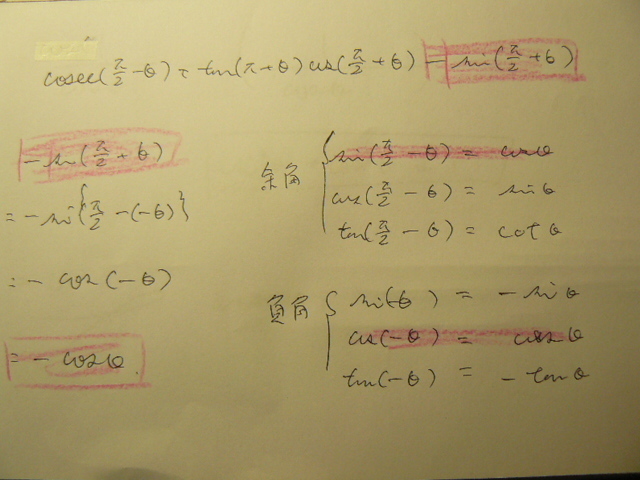 cosec(π/2 - θ) + tan(π+θ) cos(π/2 + θ) - sin(π/2 + θ)
- sin(π/2 + θ)
= - sin{π/2 - (-θ)}
= - cos(-θ)
= - cosθ
余角
sin(π/2 - θ) = cosθ
cos(π/2 - θ) = sinθ
tan(π/2 - θ) = cotθ
負角
sin(-θ) = - sinθ
cos(-θ) = cosθ
tan(-θ) = - tanθ